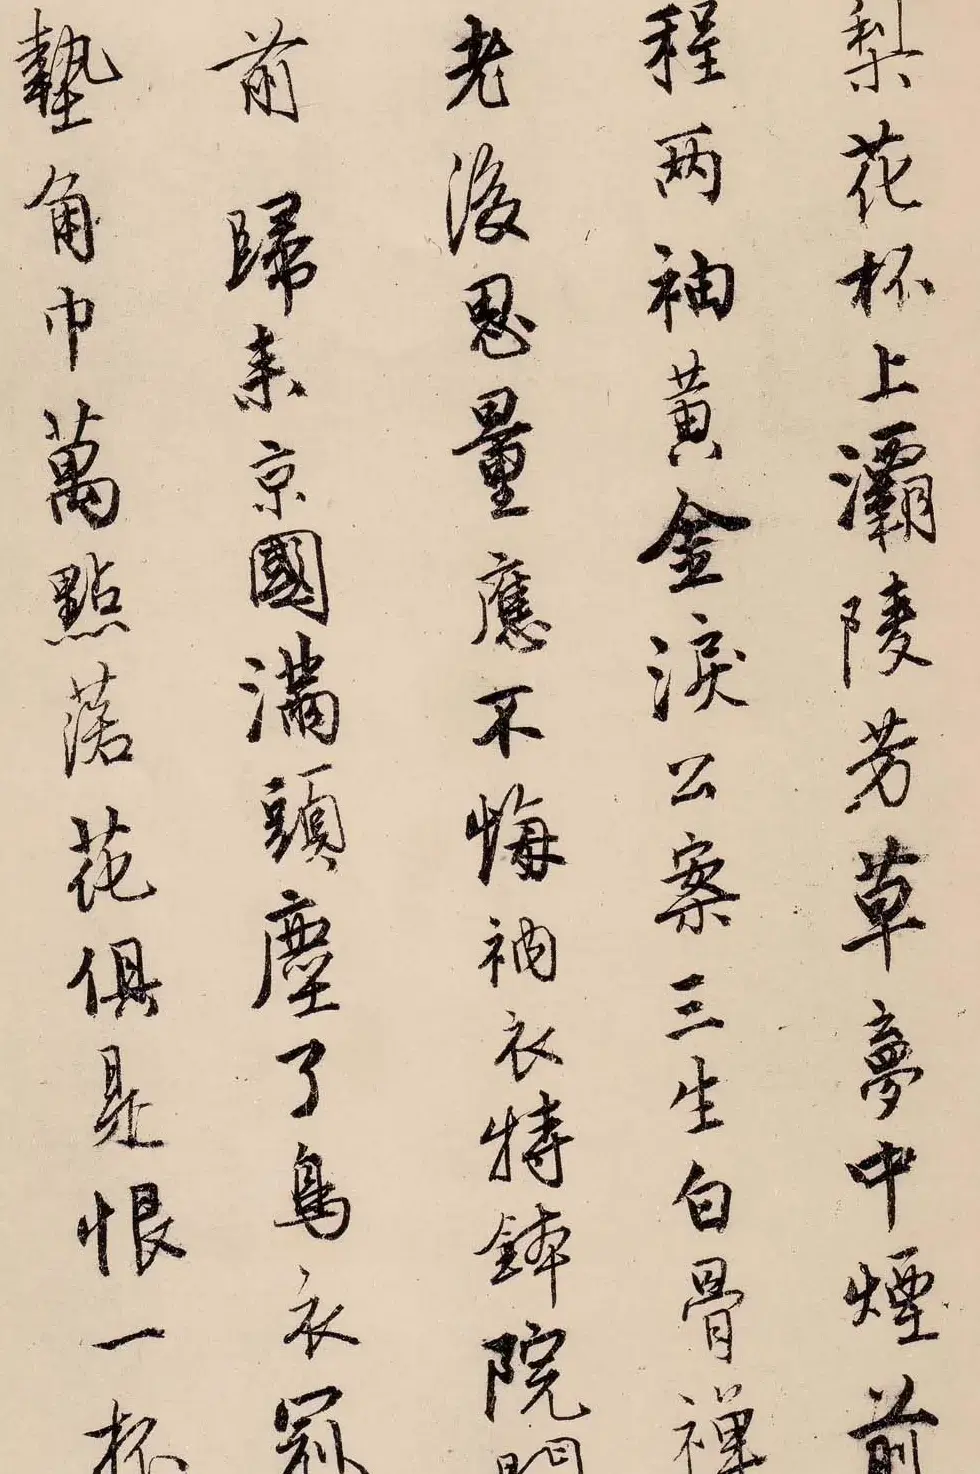 梨花杯上灞陵芳草夢中煙前
程両袖黄金淚公案三生白骨禅
老後思量應不悔衲衣持鉢院門
前 歸来京國滿頭塵了鳥衣
墊角巾萬點落花俱是恨一杯